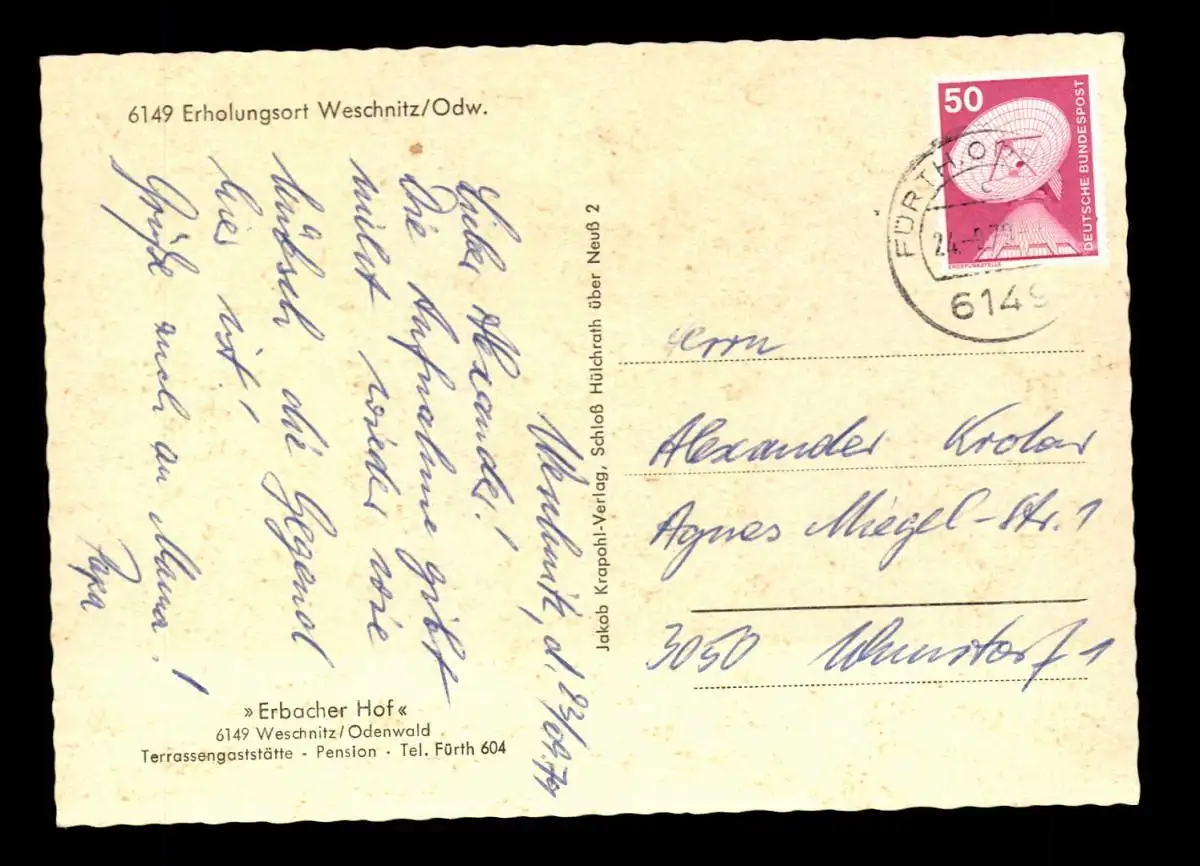 6149 Erholungsort Weschnitz/Odw.
Weschnitz, d. 23/09.79
Lieber Alexander!
Die Aufnahme gibt
nicht wieder wie
hübsch die Gegend
hier ist!
Grüße auch an Mama!
Papa
»Erbacher Hof«
6149 Weschnitz/Odenwald
Terrassengaststätte - Pension · Tel. Fürth 604
Jakob Krapohl-Verlag, Schloß Hülchrath über Neuß 2
50
DEUTSCHE BUNDESPOST
ERDEFUNKSTELLE
FÜRTH, O
24.-9.79
6149
Herrn
Alexander
Agnes Miegel-Str. 1
3050 Wunstorf 1